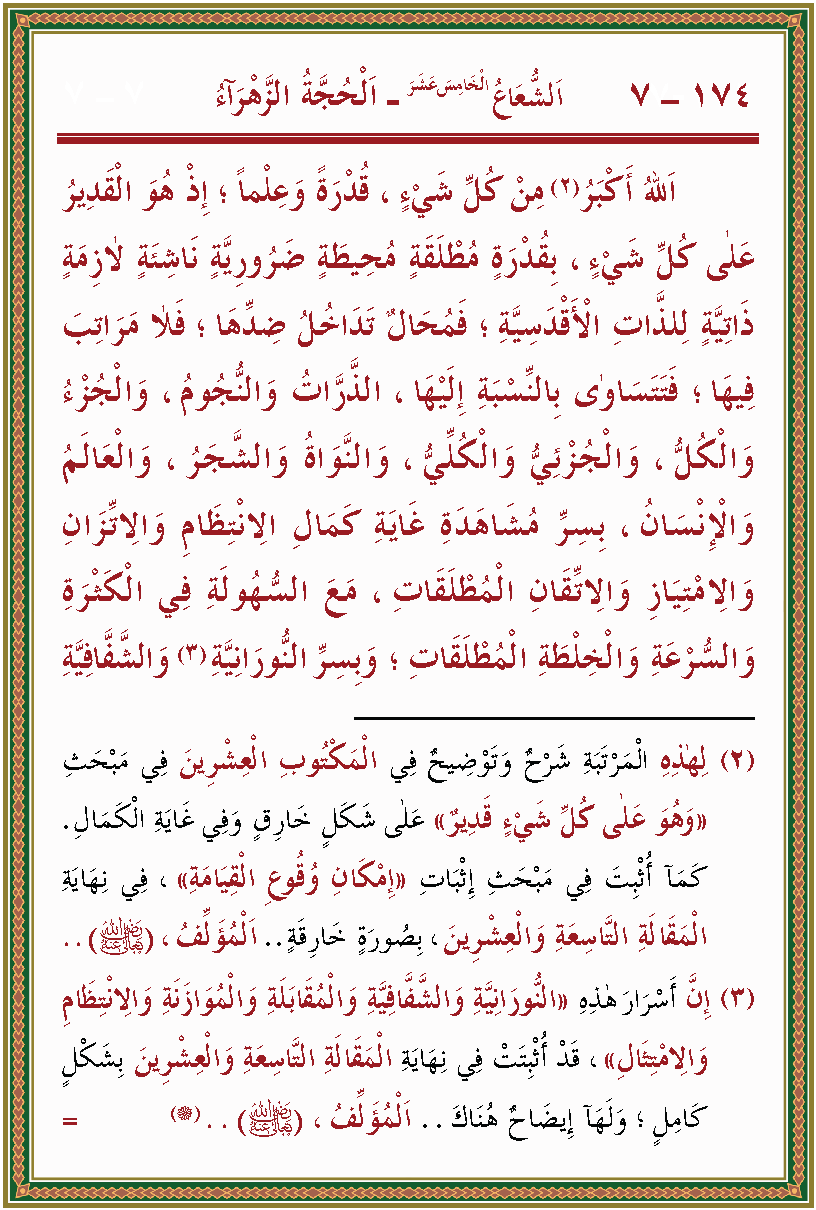 ١٧٤ – ٧ اَلشُّعَاعُ الْخَامِسَ عَشَرَ – اَلْحُجَّةُ الزَّهْرَآءُ ٧ – ٧
اَللهُ أَكْبَرُ (٢) مِنْ كُلِّ شَيْءٍ ، قُدْرَةً وَعِلْماً ؛ إِذْ هُوَ الْقَدِيرُ
عَلٰى كُلِّ شَيْءٍ ، بِقُدْرَةٍ مُطْلَقَةٍ مُحِيطَةٍ ضَرُورِيَّةٍ نَاشِئَةٍ لاٰزِمَةٍ
ذَاتِيَّةٍ لِلذَّاتِ الْأَقْدَسِيَّةِ ؛ فَمُحَالٌ تَدَاخُلُ ضِدِّهَا ؛ فَلاٰ مَرَاتِبَ
فِيهَا ؛ فَتَتَسَاوٰى بِالنِّسْبَةِ إِلَيْهَا ، الذَّرَّاتُ وَالنُّجُومُ ، وَالْجُزْءُ
وَالْكُلُّ ، وَالْجُزْئِيُّ وَالْكُلِّيُّ ، وَالنَّوَاةُ وَالشَّجَرُ ، وَالْعَالَمُ
وَالْإِنْسَانُ ، بِسِرِّ مُشَاهَدَةِ غَايَةِ كَمَالِ الاِنْتِظَامِ وَالاِتِّزَانِ
وَالاِمْتِيَازِ وَالاِتِّقَانِ الْمُطْلَقَاتِ ، مَعَ السُّهُولَةِ فِي الْكَثْرَةِ
وَالسُّرْعَةِ وَالْخِلْطَةِ الْمُطْلَقَاتِ ؛ وَبِسِرِّ النُّورَانِيَّةِ (٣) وَالشَّفَّافِيَّةِ
(٢) لِهٰذِهِ الْمَرْتَبَةِ شَرْحٌ وَتَوْضِيحٌ فِي الْمَكْتُوبِ الْعِشْرِينَ فِي مَبْحَثِ
«وَهُوَ عَلٰى كُلِّ شَيْءٍ قَدِيرٌ» عَلٰى شَكَلٍ خَارِقٍ وَفِي غَايَةِ الْكَمَالِ .
كَمَآ أُثْبِتَ فِي مَبْحَثِ إِثْبَاتِ «إِمْكَانِ وُقُوعِ الْقِيَامَةِ» ، فِي نِهَايَةِ
الْمَقَالَةِ التَّاسِعَةِ وَالْعِشْرِينَ ، بِصُورَةٍ خَارِقَةٍ . . اَلْمُؤَلِّفُ ، (رَضِيَ اللهُ تَعَالٰى عَنْهُ) . .
(٣) إِنَّ أَسْرَارَ هٰذِهِ «النُّورَانِيَّةِ وَالشَّفَّافِيَّةِ وَالْمُقَابَلَةِ وَالْمُوَازَنَةِ وَالاِنْتِظَامِ
وَالاِمْتِثَالِ» ، قَدْ أُثْبِتَتْ فِي نِهَايَةِ الْمَقَالَةِ التَّاسِعَةِ وَالْعِشْرِينَ بِشَكْلٍ
كَامِلٍ ؛ وَلَهَآ إِيضَاحٌ هُنَاكَ . . اَلْمُؤَلِّفُ ، (رَضِيَ اللهُ تَعَالٰى عَنْهُ) . . (*) =